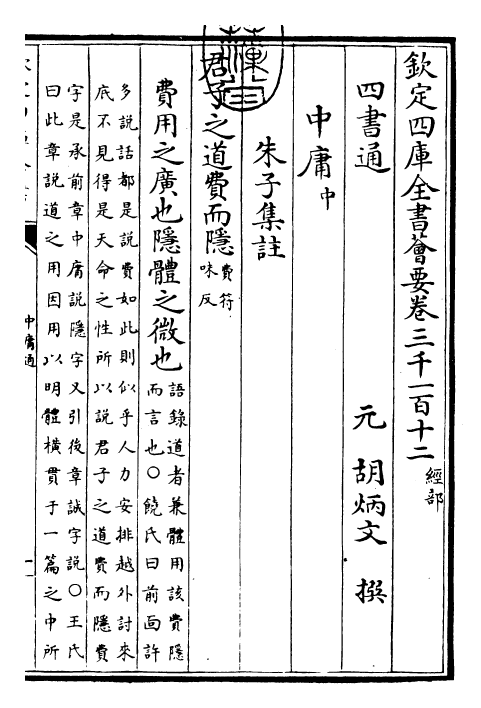 欽定四庫全書薈要卷三千一百十二 經部
四書通 元 胡炳文 撰
中庸 中
朱子集註
君子之道費而隱 費符
味反
費用之廣也隱體之微也 語錄道者兼體用該費隱
而言也○饒氏曰前面許
多說話都是說費如此則似乎人力安排越外討來
底不見得是天命之性所以說君子之道費而隱費
字是承前章中庸說隱字又引後章誠字說○王氏
曰此章說道之用因用以明體橫貫于一篇之中所
中庸通